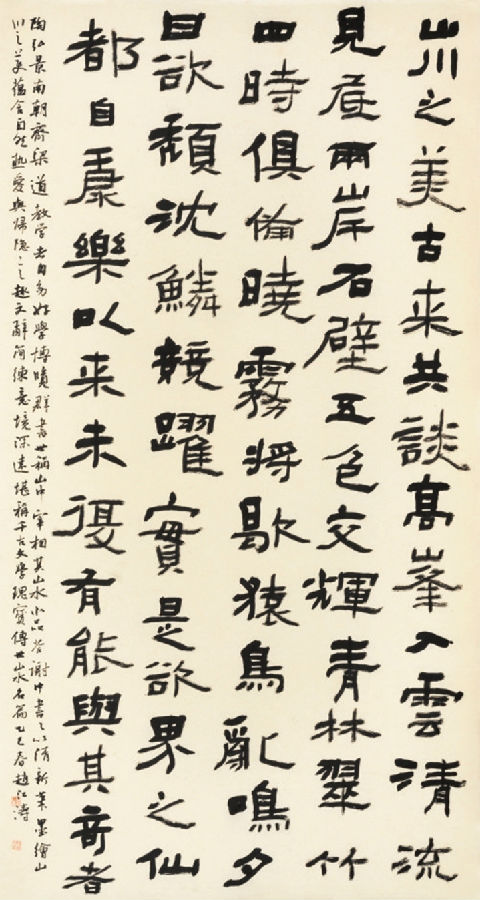 山川之美古来共談高峯入雲清流
見底兩岸石壁五色交輝青林翠竹
四時俱備曉霧將歇猿鳥亂鳴夕
日欲頹沈鱗競躍實是欲界之仙
都自康樂以来未復有能與其奇者
陶弘景南朝齊梁道教学者自幼好學博覽群書世稱山中宰相其山水小品答謝中書書以清新筆墨繪山
川之美蘊含自然熱愛與歸隐之趣文辭簡練意境深遠堪稱千古文學瑰寶傳世山水名篇乙巳春趙江濤